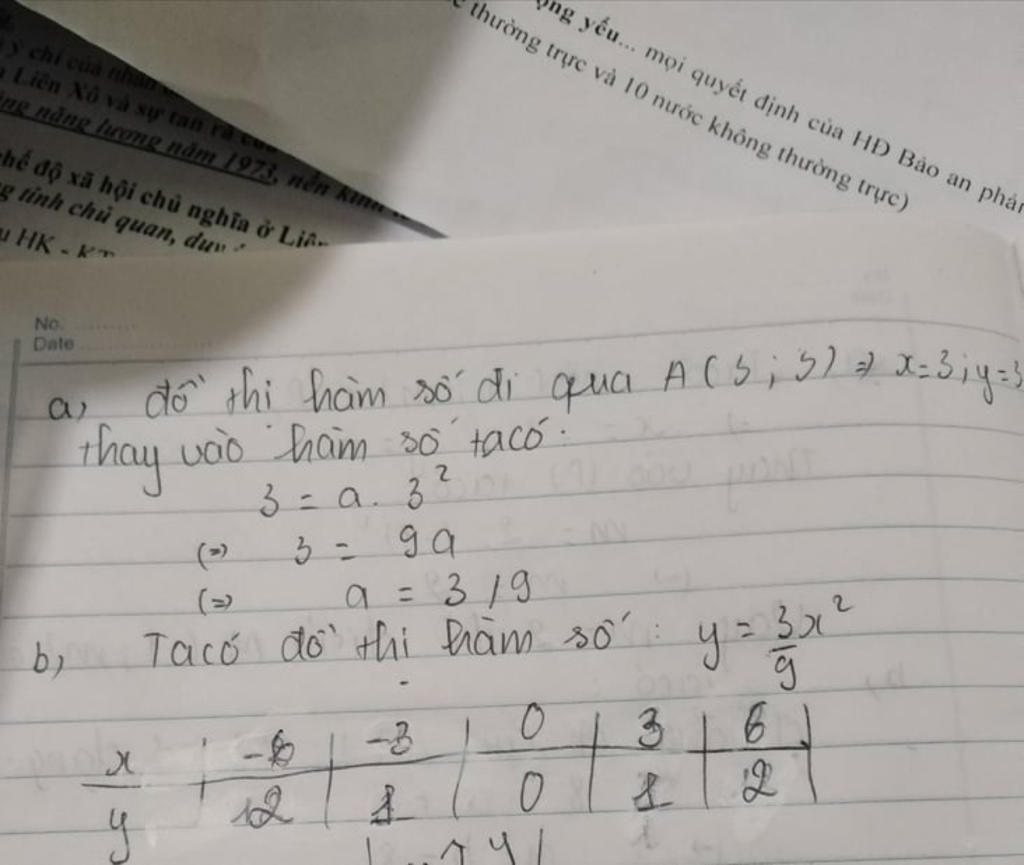 ọng yếu... mọi quyết định của HĐ Bảo an phải
thường trực và 10 nước không thường trực)
ý chí của nhân
Liên Xô và sự tan rã của
năng lượng năm 1973, nền kinh tế
chế độ xã hội chủ nghĩa ở Liên
tính chủ quan, duy
HK - KT
No.
Date
a, đồ thi hàm số đi qua A(3; 3) => x=3; y=3
thay vào hàm số ta có:
3 = a. 3²
(=) 3 = 9a
(=) a = 3/9
b, Ta có đồ thi hàm số: y = 3/9 x²
x | -6 | -3 | 0 | 3 | 6 |
y | 12 | 1 | 0 | 1 | 12 |